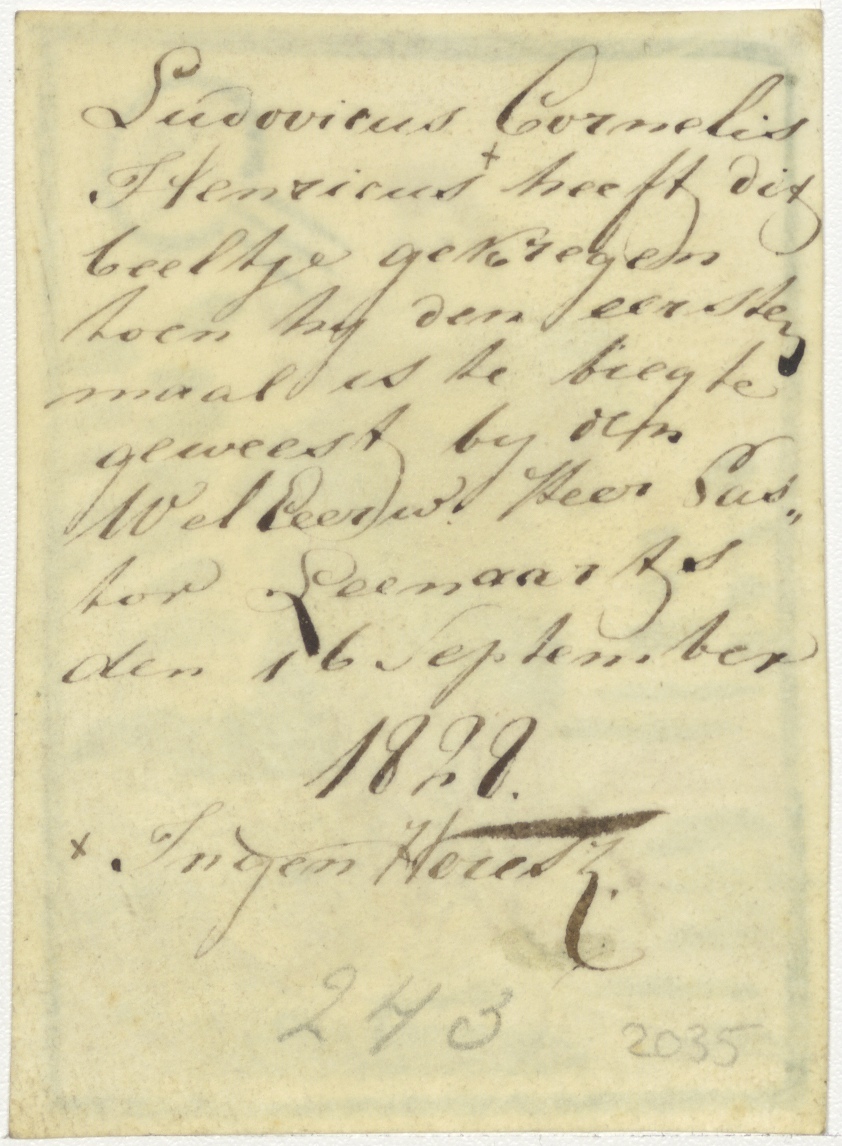 Ludovicus Cornelis
Henricus + heeft dit
beeltje gekregen
toen hy den eersten
maal is te biegte
geweest by den
Wel Eeerdw. Heer Pas„
tor Leenaarts
den 16 September
1828.
x Ingen Housz.
243 2035